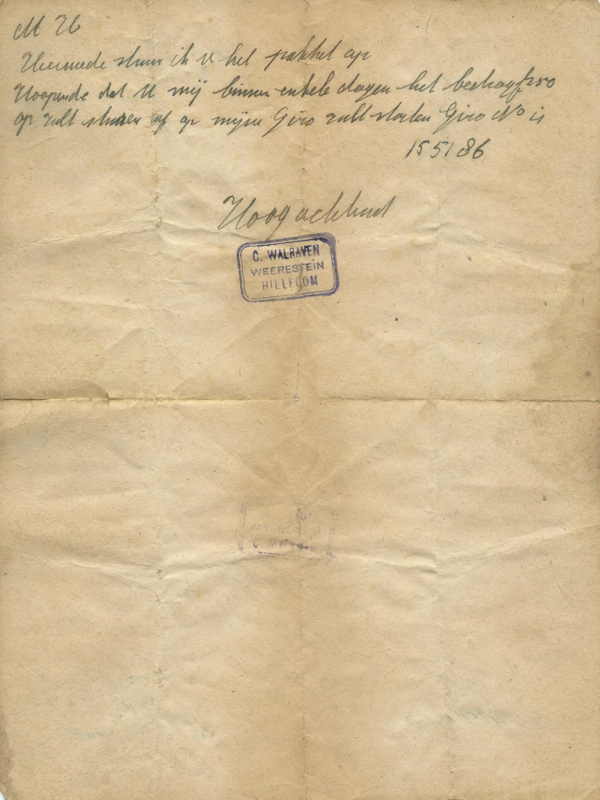 M H
Hiermede stuur ik U het pakket op
Hoopende dat U mij binnen enkele dagen het bedrag f 2.50
op zult sturen of op mijn Giro zult storten Giro No is
155186
Hoogachtend
C. WALRAVEN
WEERESTEIN
HILLEGOM